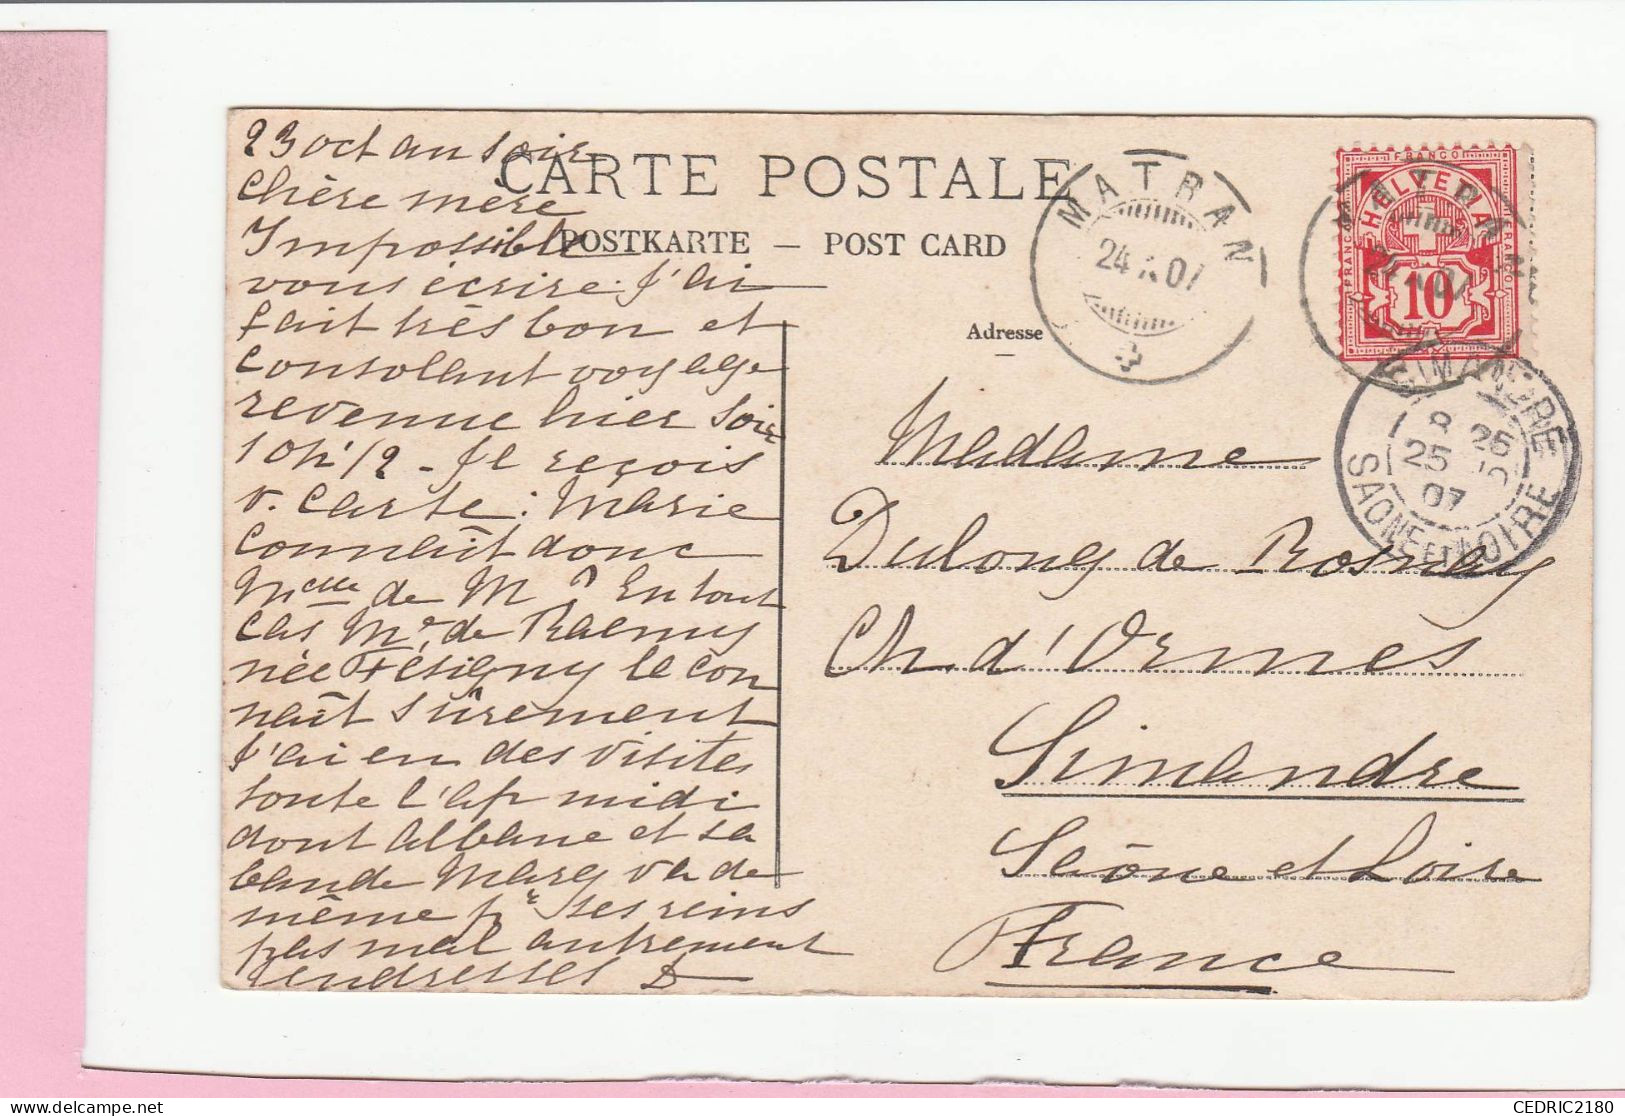 23 oct au soir
CARTE POSTALE
Chère mère
Impossible
POSTKARTE — POST CARD
vous écrire. J'ai
fait très bon et
consolant voyage
revenue hier soir
10h 1/2 - Je reçois
v. carte : Marie
connait donc
Mcelle de M ? En tout
cas Me de Raemy
née Fésigny le con
naît sûrement
J'ai eu des visites
toute l'ap midi
dont Albane et sa
bande Marg va de
même pr ses reins
pas mal autrement
tendresses D
Adresse
Madame
Dulong de Rosnay
Ch. d'Ormes
Simandre
Saône et Loire
France
MATRAN
24 X 07
FRANCO
HELVETIA
FRANCO
FRANCO
10
MATRAN
24 X 07
SIMANDRE
8 25
25 10
07
SAONE ET LOIRE
CEDRIC2180